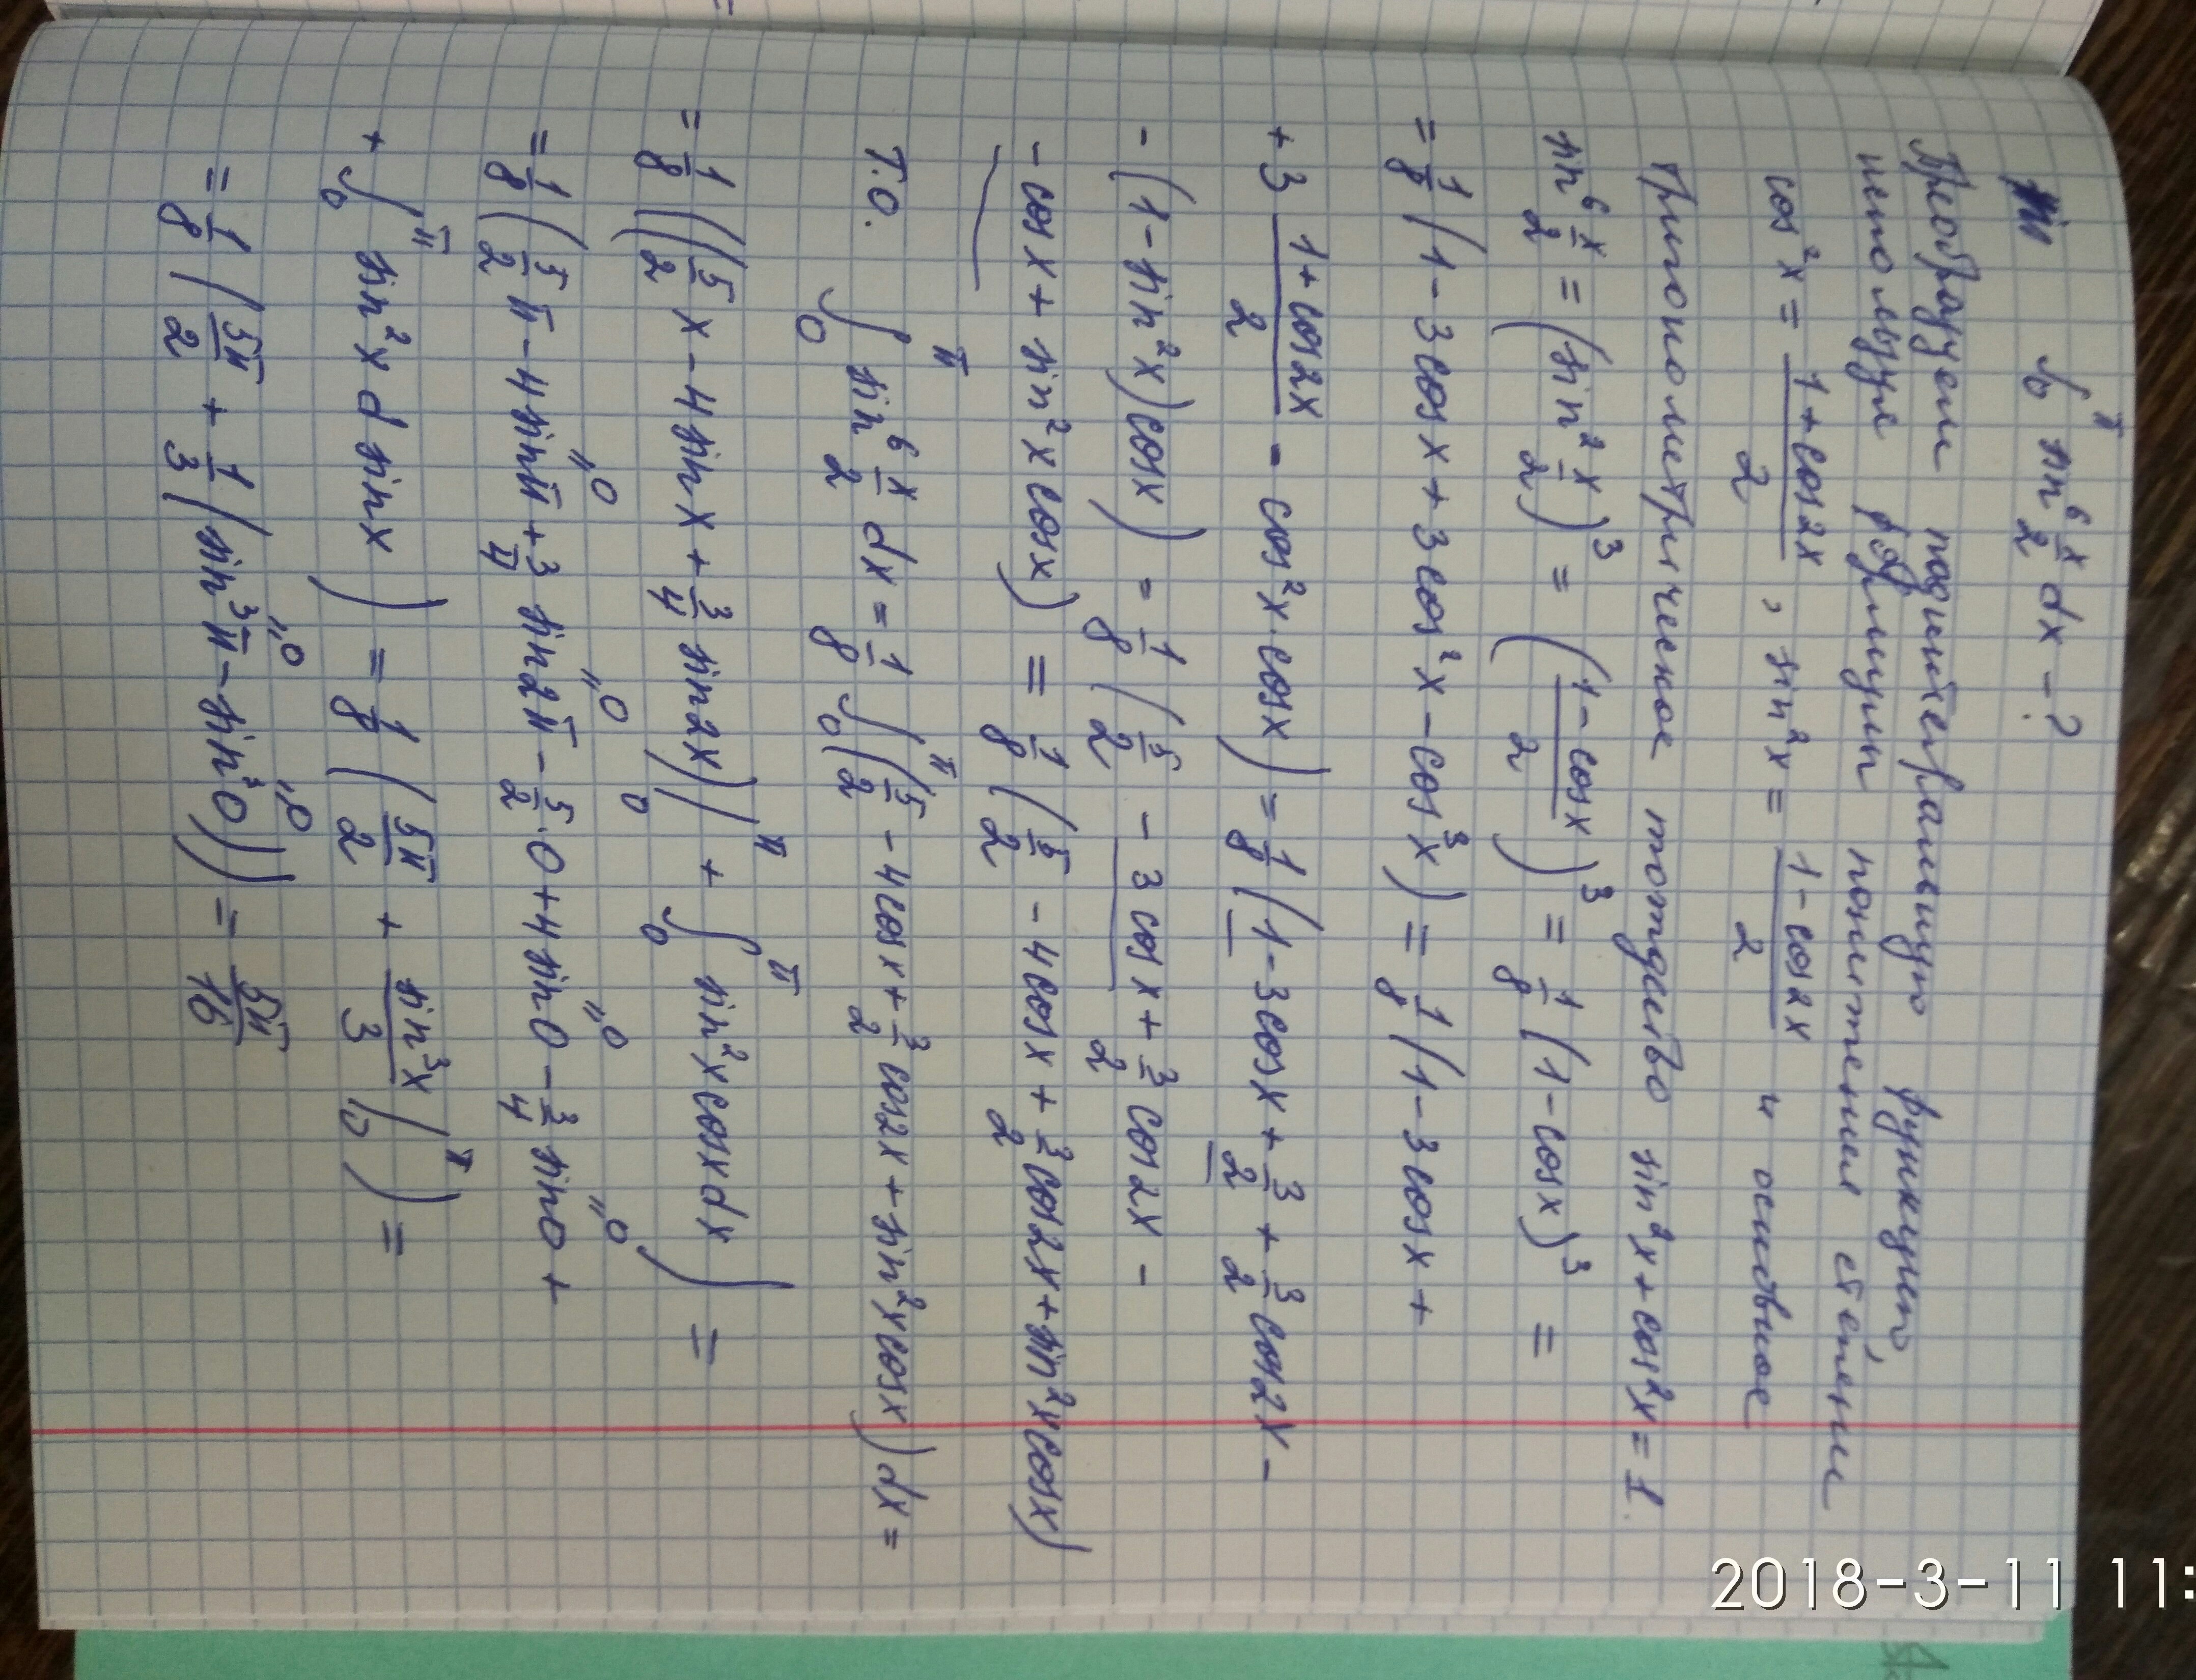 ∫₀^π sin⁶ x/2 dx - ?
Преобразуем подинтегральную функцию,
используя формулы понижения степени
cos²x = (1+cos2x)/2, sin²x = (1-cos2x)/2 и основное
тригонометрическое тождество sin²x+cos²x=1.
sin⁶ x/2 = (sin² x/2)³ = ((1-cosx)/2)³ = 1/8 (1-cosx)³ =
= 1/8 (1-3cosx+3cos²x-cos³x) = 1/8 (1-3cosx+
+3 (1+cos2x)/2 - cos²x·cosx) = 1/8 (1-3cosx+3/2+3/2 cos2x-
-(1-sin²x)cosx) = 1/8 (5/2 - 3cosx+3/2 cos2x-
-cosx+sin²xcosx) = 1/8 (5/2 - 4cosx+3/2 cos2x+sin²xcosx)
Т.О. ∫₀^π sin⁶ x/2 dx = 1/8 ∫₀^π (5/2 - 4cosx+3/2 cos2x+sin²xcosx)dx =
= 1/8 ((5/2 x-4sinx+3/4 sin2x)|₀^π + ∫₀^π sin²xcosxdx) =
= 1/8 (5/2 π-4sinπ+3/4 sin2π-5/2·0+4sin0-3/4 sin0+
"0 "0 "0 "0
+∫₀^π sin²x d sinx) = 1/8 (5π/2 + sin³x/3 |₀^π) =
= 1/8 (5π/2 + 1/3 (sin³π-sin³0)) = 5π/16
"0 "0
2018-3-11 11: